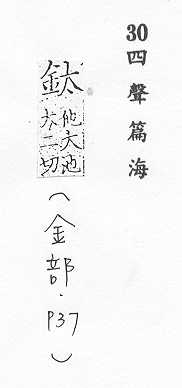 30
四聲篇海
鈦
他大池
大二切
(金部．P37)